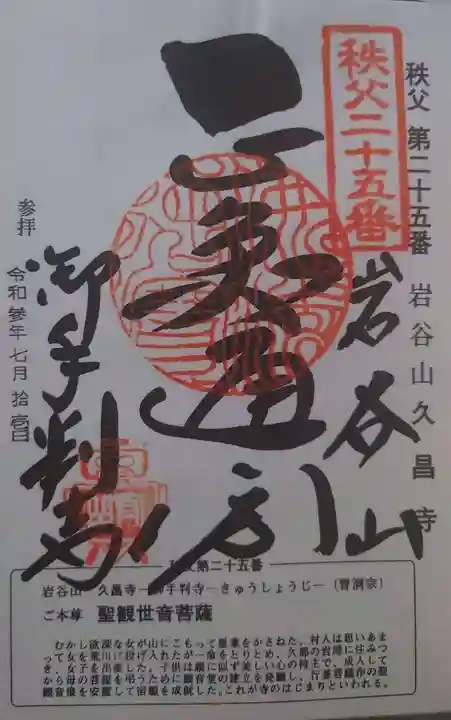 秩父 第二十五番 岩谷山久昌寺
秩父二十五番
岩谷山
御手判寺
参拝
令和參年七月拾壱日
秩父第二十五番
岩谷山 久昌寺 御手判寺 ―きゅうしょうじ― (曹洞宗)
ご本尊 聖観世音菩薩
むかし欲深な女が山にこもって悪業をかさねた。村人は思いあま
って、女を荒川に投げ入れたが一命をとりとめ、久那の岩場に住みつ
き、女子を出産した。子供は親に似ず美しい心の持主で、成人して
から母の菩提を弔うために観音堂の建立を発願し、行基菩薩作の聖
観音像を安置して宿願を成就した。これが寺のはじまりといわれる。